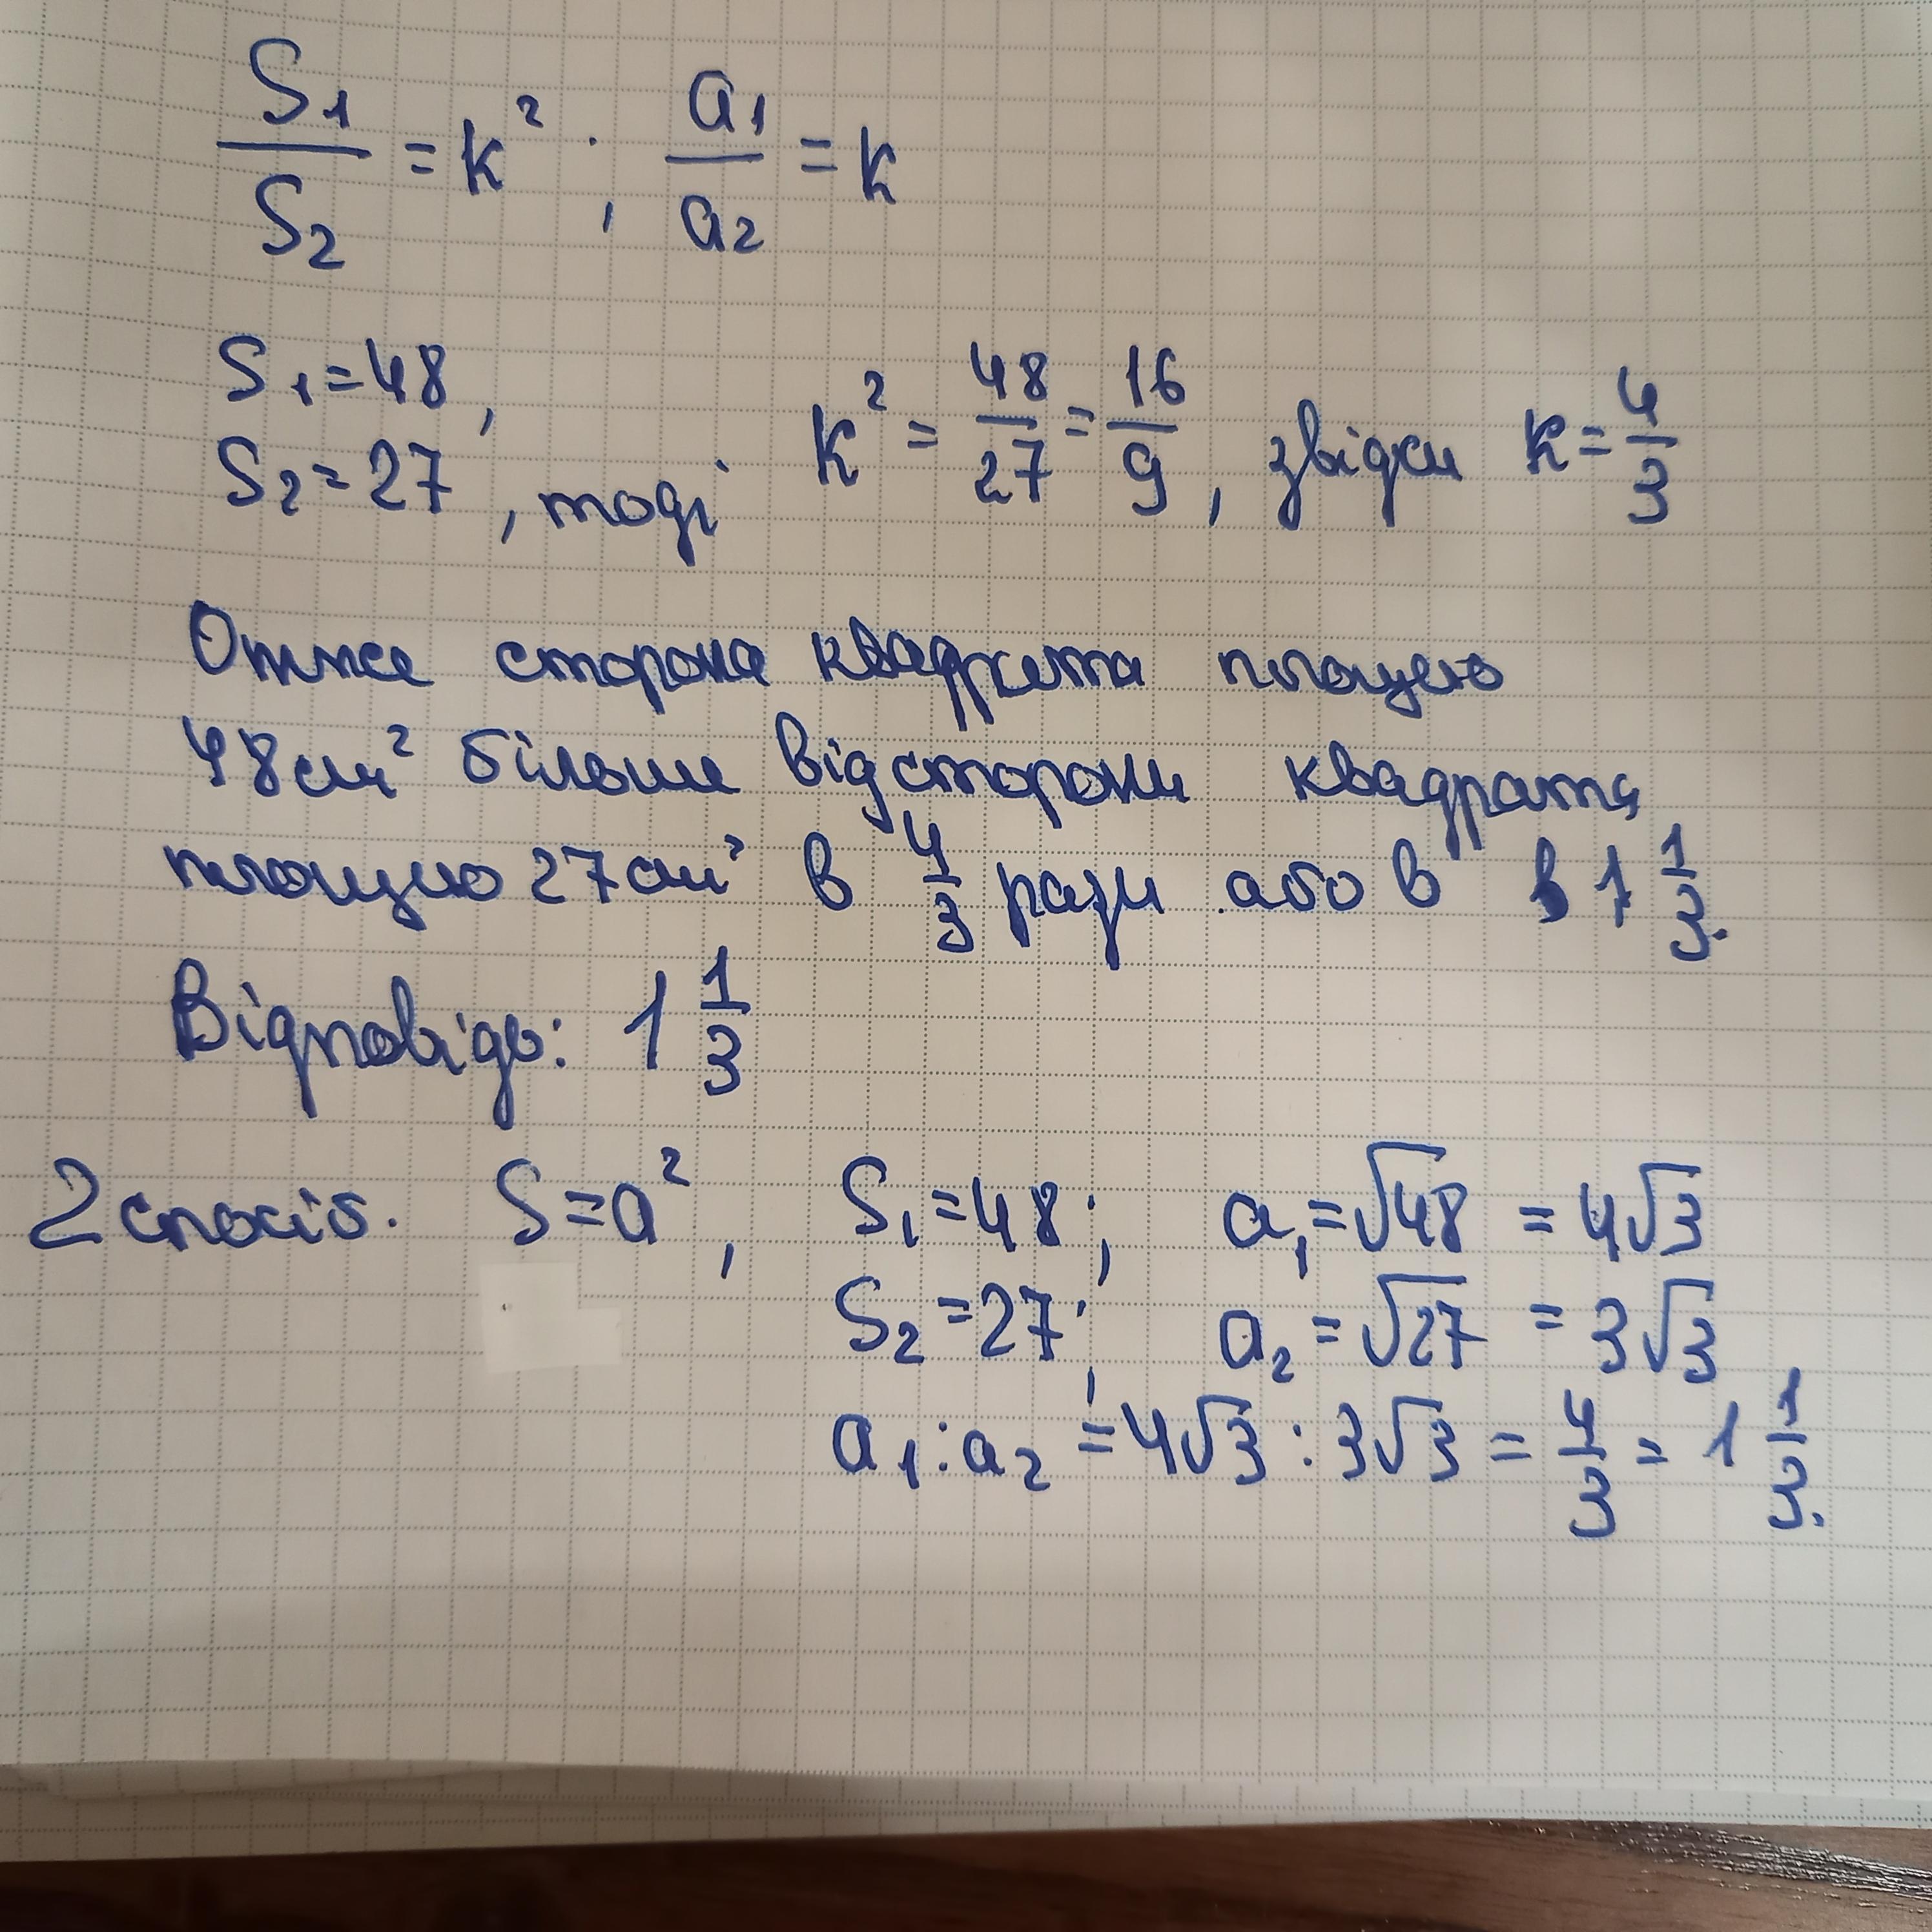 S₁/S₂ = k² ; a₁/a₂ = k
S₁ = 48,
S₂ = 27, тоді k² = 48/27 = 16/9, звідки k = 4/3
Отже сторона квадрата площею
48 см² більше від сторони квадрата
площею 27 см² в 4/3 рази або в в 1 1/3.
Відповідь: 1 1/3
2 спосіб. S = a², S₁ = 48; a₁ = √48 = 4√3
S₂ = 27; a₂ = √27 = 3√3
a₁ : a₂ = 4√3 : 3√3 = 4/3 = 1 1/3.